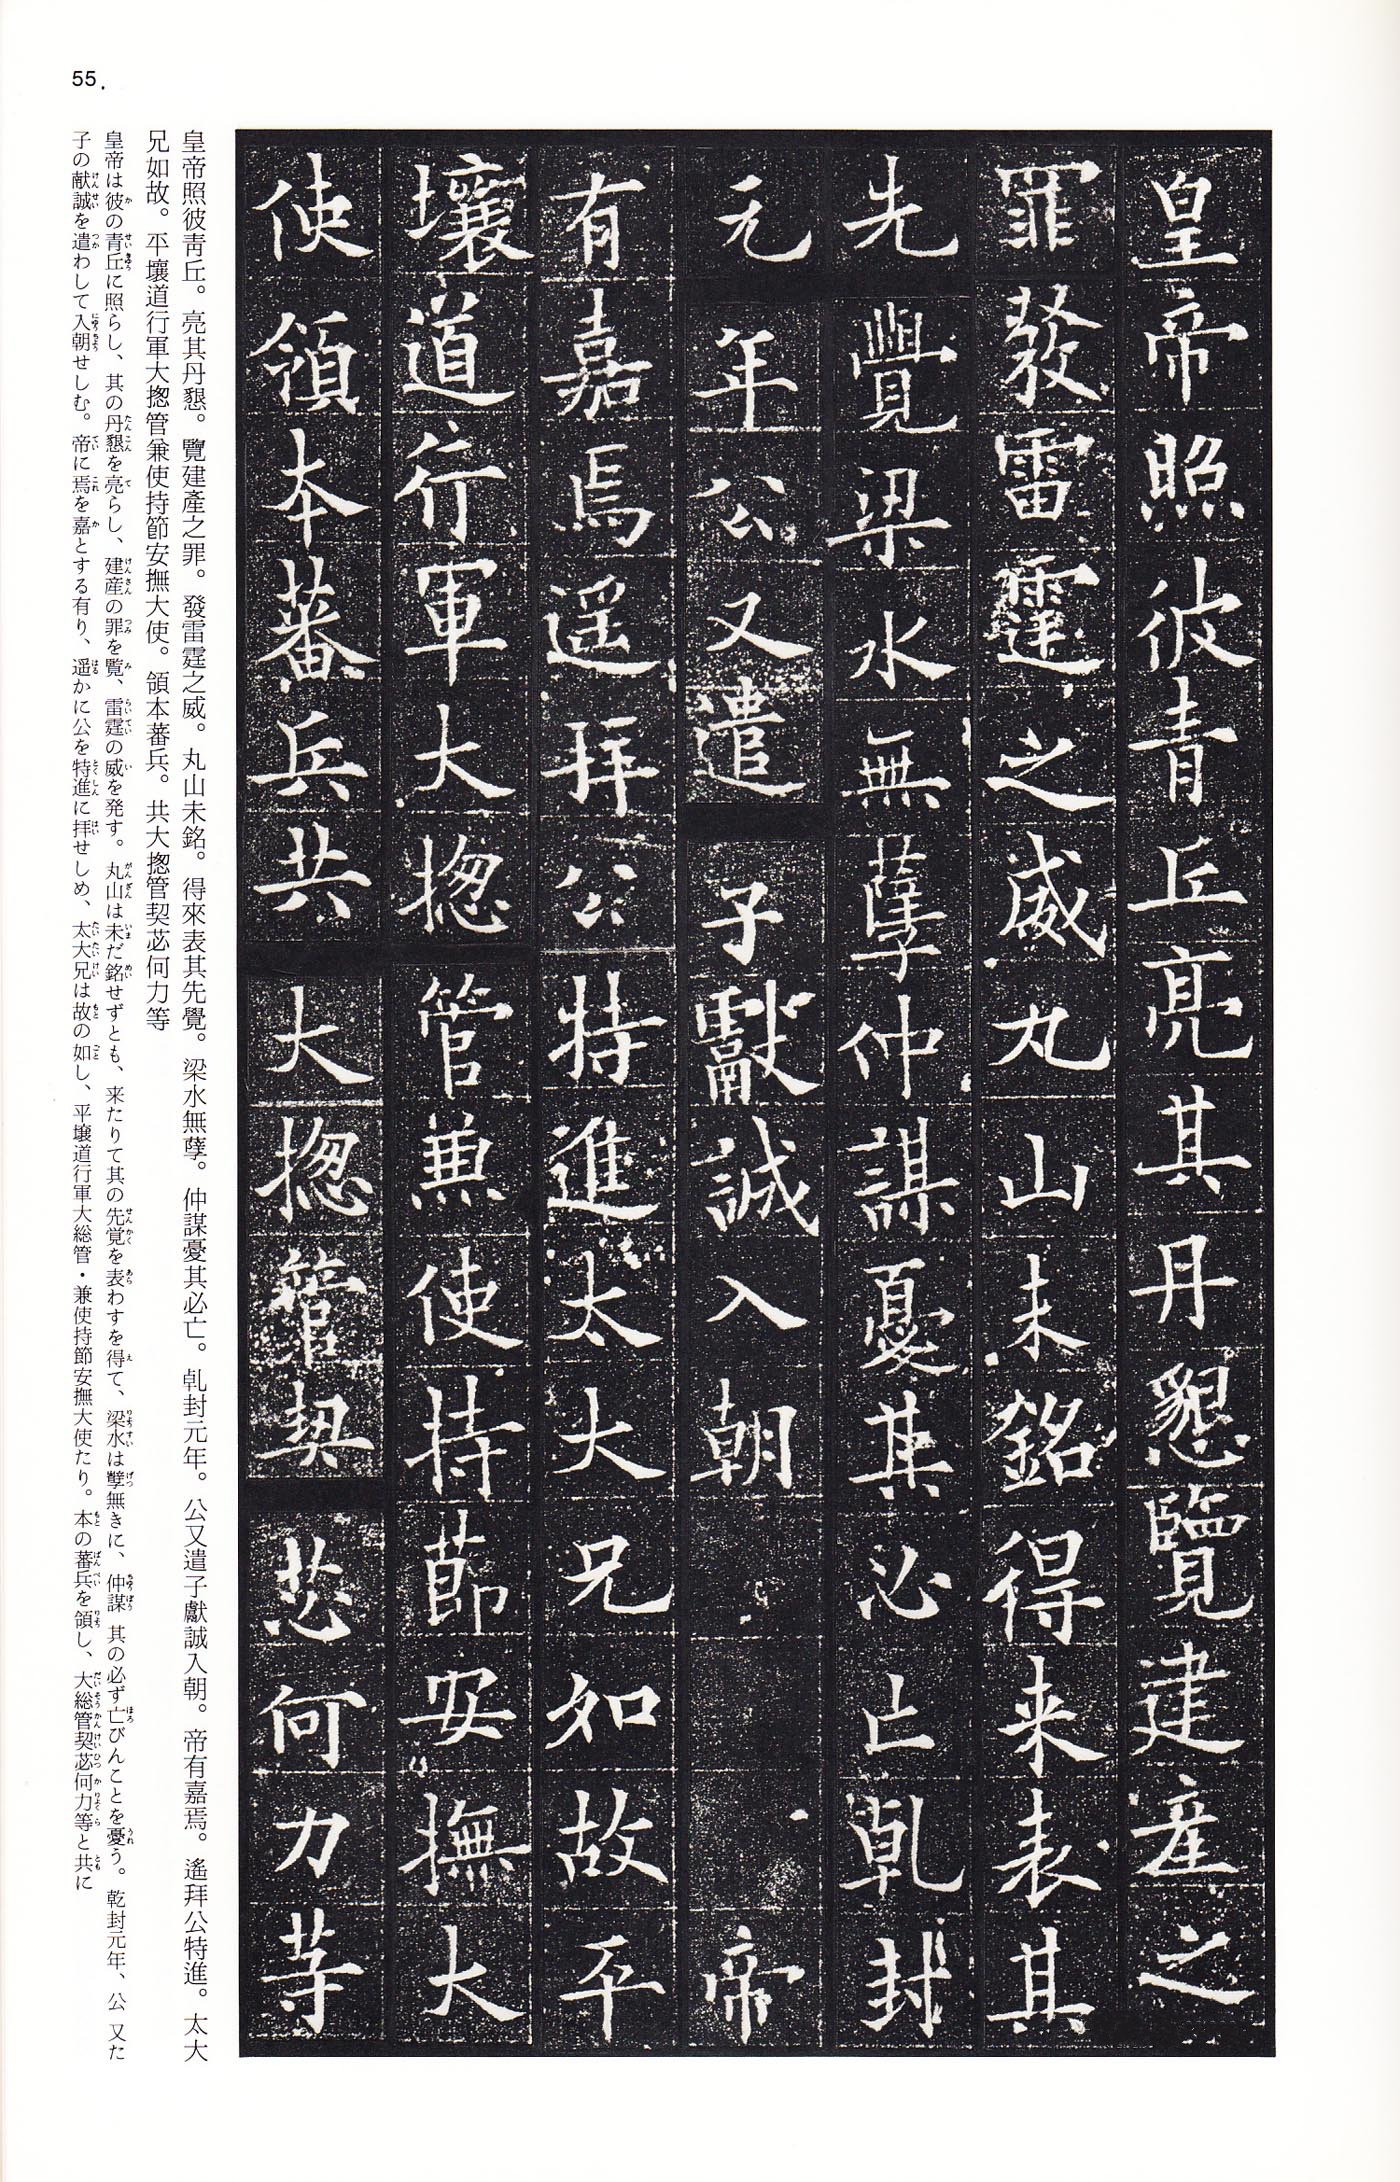 55.
皇帝照彼青丘亮其丹懇覽建產之
罪發雷霆之威丸山未銘得来表其
先覺梁水無孽仲謀憂其必亡乹封
元年公又遣子獻誠入朝帝
有嘉焉遥拜公特進太大兄如故平
壤道行軍大揔管兼使持節安撫大
使領本蕃兵共大揔管契苾何力等
皇帝照彼靑丘。亮其丹懇。覽建產之罪。發雷霆之威。丸山未銘。得來表其先覺。梁水無孽。仲謀憂其必亡。乹封元年。公又遣子獻誠入朝。帝有嘉焉。遙拜公特進。太大
兄如故。平壤道行軍大揔管兼使持節安撫大使。領本蕃兵。共大揔管契苾何力等
皇帝は彼の青丘に照らし、其の丹懇を亮らし、建産の罪を覧、雷霆の威を発す。丸山は未だ銘せずとも、来たりて其の先覚を表わすを得て、梁水は孽無きに、仲謀 其の必ず亡びんことを憂う。乾封元年、公 又た
子の献誠を遣わして入朝せしむ。帝に焉を嘉とする有り、遥かに公を特進に拝せしめ、太大兄は故の如し、平壌道行軍大総管・兼使持節安撫大使たり。本の蕃兵を領し、大総管契苾何力等と共に